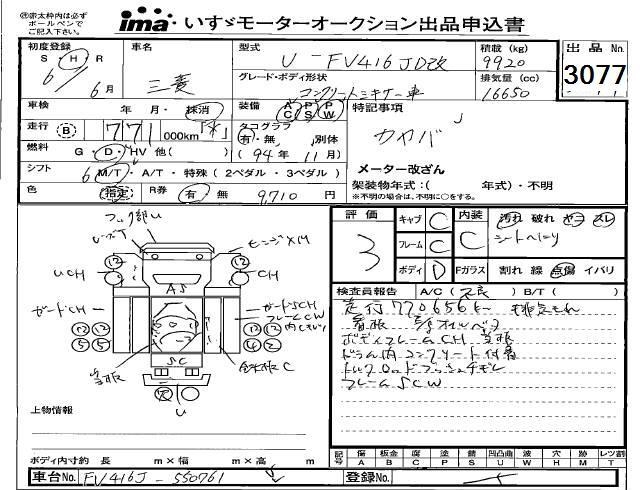 ㊟赤太枠内は必ず
ボールペンで
ご記入下さい。
ima いすゞモーターオークション出品申込書
初度登録
S・H・R
6年 6月
車名
三菱
型式
U-FV416JD改
積載(kg)
9920
出品No.
3077
グレード・ボディ形状
コンクリートミキサー車
排気量(cc)
16650
車検 年・月・抹消
装備 A/C P/S P/W
特記事項
カヤバ
走行 B 771 000km
タコグラフ
有・無 別体
(94年 11月)
燃料 G・D・HV 他( )
シフト 6 M/T・A/T・特殊(2ペダル・3ペダル)
メーター改ざん
架装物年式:( 年式)・不明
※不明の場合は、不明に○をする。
色 指定 R券 有 無 9,710 円
評価 3
キャブ C
フレーム C
ボディ D
内装 C
汚れ 破れ ヤニ スレ
シートヘタリ
Fガラス 割れ 線 点傷 イバリ
検査員報告 A/C(不良) B/T( )
走行770656K
ボディフレームCH
ドラム内コンクリート付着
フレームSCW
フック部U
エンジンXM
UCH
CH
AS
ガードCH
ガードSCH
フレームCW
SC
U
上物情報
記号 傷A 板金B 腐C 塗P 錆S 凹凸曲U 波W 穴H 跡M レツ割T
ボディ内寸約 長 m×幅 m×高 m
車台No. FV416J-550761
登録No.